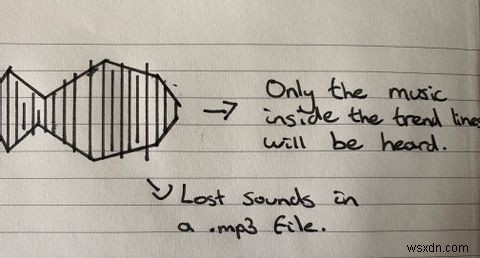 Only the music
inside the trend lines
will be heard.
Lost sounds in
a .mp3 file.
wsxdn.com